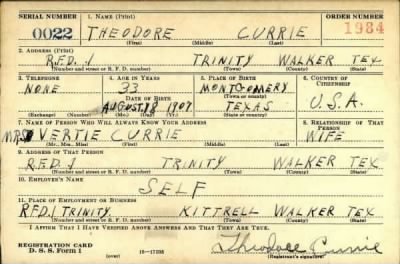 SERIAL NUMBER 1. NAME (Print) ORDER NUMBER
0022 THEODORE CURRIE 1984
(First) (Middle) (Last)
2. ADDRESS (Print)
R.F.D. 1 TRINITY WALKER TEX
(Number and street or R. F. D. number) (Town) (County) (State)
3. TELEPHONE 4. AGE IN YEARS 5. PLACE OF BIRTH 6. COUNTRY OF CITIZENSHIP
NONE 33 MONTGOMERY
DATE OF BIRTH (Town or county)
AUGUST 18 1907 TEXAS U.S.A.
(Exchange) (Number) (Mo.) (Day) (Yr.) (State or country)
7. NAME OF PERSON WHO WILL ALWAYS KNOW YOUR ADDRESS 8. RELATIONSHIP OF THAT PERSON
MRS VERTIE CURRIE WIFE
(Mr., Mrs., Miss) (First) (Middle) (Last)
9. ADDRESS OF THAT PERSON
R.F.D. 1 TRINITY WALKER TEX
(Number and street or R. F. D. number) (Town) (County) (State)
10. EMPLOYER'S NAME
SELF
11. PLACE OF EMPLOYMENT OR BUSINESS
R.F.D. 1 TRINITY KITTRELL WALKER TEX
(Number and street or R. F. D. number) (Town) (County) (State)
I AFFIRM THAT I HAVE VERIFIED ABOVE ANSWERS AND THAT THEY ARE TRUE.
REGISTRATION CARD
D. S. S. FORM 1 (over) Theodore Currie
(Registrant's signature)